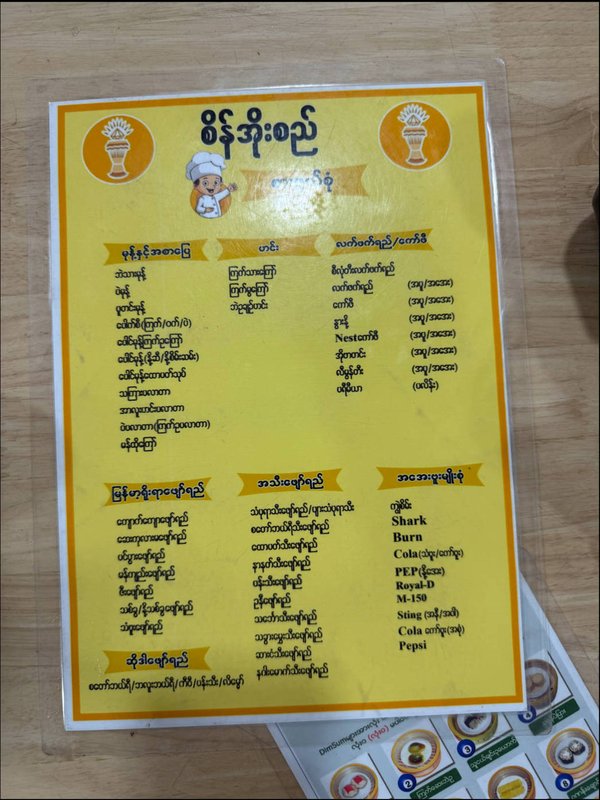 စိန်အိုးစည်
မုန့်နှင့်အစာပြေ
ဘဲသားမုန့်
ပဲမုန့်
ပူတင်းမုန့်
ပေါက်စီ(ကြက်/ဝက်/ပဲ)
ပေါင်မုန့်ကြက်ဥကြော်
ပေါင်မုန့်(နို့ဆီ/နို့စိမ်းသမ်း)
ပေါင်မုန့်ထောပတ်သုပ်
သကြားပလာတာ
အာလူးဟင်းပလာတာ
ပဲပလာတာ(ကြက်ဥပလာတာ)
မုန်ထိုကြော်
ဟင်း
ကြက်သားကြော်
ကြက်မွကြော်
ဘဲဥချဉ်ဟင်း
လက်ဖက်ရည်/ကော်ဖီ
စီလုံတီးလက်ဖက်ရည်
လက်ဖက်ရည် (အပူ/အအေး)
ကော်ဖီ (အပူ/အအေး)
နွားနို့ (အပူ/အအေး)
Nestကော်ဖီ (အပူ/အအေး)
အိုဗာတင်း (အပူ/အအေး)
လီမွန်တီး (အပူ/အအေး)
ပရီမီယာ (ပလိန်း)
မြန်မာ့ရိုးရာဖျော်ရည်
ကျောက်ကျောဖျော်ရည်
အေးကုလားမဖျော်ရည်
မန်ကျည်းဖျော်ရည်
ဇီးဖျော်ရည်
သစ်ခွ/နို့သစ်ခွဖျော်ရည်
သံပုရာဖျော်ရည်
ဆိုဒါဖျော်ရည်
စတော်ဘယ်ရီ/ဘလူးဘယ်ရီ/ကီဝီ/ပန်းသီး/လိမ္မော်
အသီးဖျော်ရည်
သံပုရာသီးဖျော်ရည်/ပျားသံပုရာသီး
စတော်ဘယ်ရီသီးဖျော်ရည်
ထောပတ်သီးဖျော်ရည်
နာနတ်သီးဖျော်ရည်
ပန်းသီးဖျော်ရည်
ဥနီဖျော်ရည်
သင်္ဘောသီးဖျော်ရည်
သခွားမွှေးသီးဖျော်ရည်
ဆားငံသီးဖျော်ရည်
နဂါးမောက်သီးဖျော်ရည်
အအေးဗူးမျိုးစုံ
ကျွဲစိမ်း
Shark
Burn
Cola(သံဗူး/ကော်ဗူး)
PEP(နို့အေး)
Royal-D
M-150
Sting (အနီ/အဝါ)
Cola ကော်ဗူး(အစုံ)
Pepsi